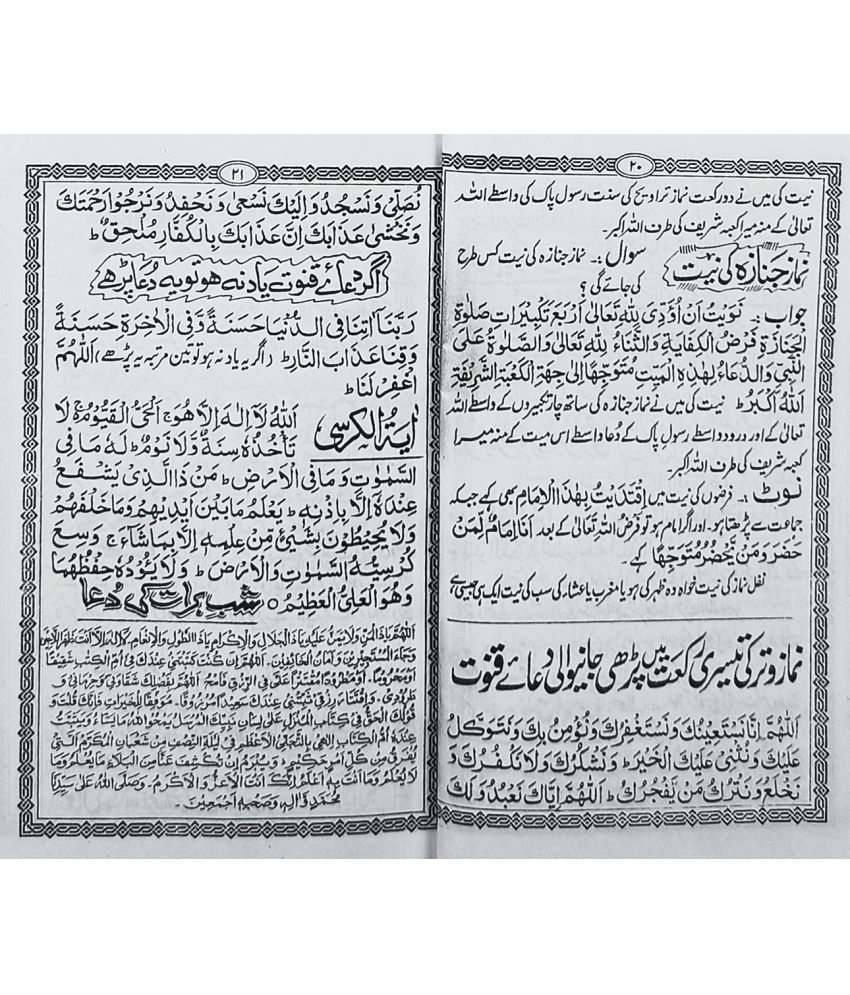 ۲۰
نیت کی میں نے دو رکعت نماز تراویح کی سنت رسول پاک کی واسطے اللہ
تعالیٰ کے منہ میرا کعبہ شریف کی طرف اللہ اکبر۔
نماز جنازہ کی نیت
سوال :۔ نماز جنازہ کی نیت کس طرح
کی جائے گی ؟
جواب :۔ نَوَیْتُ اَنْ اُؤَدِّیَ لِلّٰہِ تَعَالٰی اَرْبَعَ تَکْبِیْرَاتِ صَلٰوۃِ
الْجَنَازَۃِ فَرْضُ الْکِفَایَۃِ وَالثَّنَاءُ لِلّٰہِ تَعَالٰی وَالصَّلٰوۃُ عَلَی
النَّبِیِّ وَالدُّعَاءُ لِھٰذِہِ الْمَیِّتِ مُتَوَجِّھًا اِلٰی جِھَۃِ الْکَعْبَۃِ الشَّرِیْفَۃِ
اَللّٰہُ اَکْبَرُ ط نیت کی میں نے نماز جنازہ کی ساتھ چار تکبیروں کے واسطے اللہ
تعالیٰ کے اور درود واسطے رسول پاک کے دعا واسطے اس میت کے منہ میرا
کعبہ شریف کی طرف اللہ اکبر۔
نوٹ :۔ فرضوں کی نیت میں اِقْتَدَیْتُ بِھٰذَا الْاِمَامِ بھی کہے جبکہ
جماعت سے پڑھتا ہو۔ اور اگر امام ہو تو فَرْضُ اللّٰہِ تَعَالٰی کے بعد اَنَا اِمَامٌ لِّمَنْ
حَضَرَ وَمَنْ یَّحْضُرُ مُتَوَجِّھًا کہے۔
نفل نماز کی نیت خواہ وہ ظہر کی ہو یا مغرب یا عشاء کی سب کی نیت ایک ہی جیسی ہے
نماز وتر کی تیسری رکعت میں پڑھی جانیوالی دعائے قنوت
اَللّٰھُمَّ اِنَّا نَسْتَعِیْنُكَ وَنَسْتَغْفِرُكَ وَنُؤْمِنُ بِكَ وَنَتَوَکَّلُ
عَلَیْكَ وَنُثْنِیْ عَلَیْكَ الْخَیْرَ ط وَنَشْکُرُكَ وَلَا نَکْفُرُكَ وَ
نَخْلَعُ وَنَتْرُكُ مَنْ یَّفْجُرُكَ ط اَللّٰھُمَّ اِیَّاكَ نَعْبُدُ وَلَكَ
۲۱
نُصَلِّیْ وَنَسْجُدُ وَاِلَیْكَ نَسْعٰی وَنَحْفِدُ وَنَرْجُوْا رَحْمَتَكَ
وَنَخْشٰی عَذَابَكَ اِنَّ عَذَابَكَ بِالْکُفَّارِ مُلْحِقٌ ط
اگر دعائے قنوت یاد نہ ہو تو یہ دُعا پڑھے
رَبَّنَا اٰتِنَا فِی الدُّنْیَا حَسَنَۃً وَّفِی الْاٰخِرَۃِ حَسَنَۃً
وَّقِنَا عَذَابَ النَّارِ ط (اگر یہ یاد نہ ہو تو تین مرتبہ یہ پڑھے) اَللّٰھُمَّ
اغْفِرْلَنَا ط
اٰیۃُ الکرسی
اَللّٰہُ لَآ اِلٰہَ اِلَّا ھُوَ ج اَلْحَیُّ الْقَیُّوْمُ ج لَا
تَأْخُذُہٗ سِنَۃٌ وَّلَا نَوْمٌ ط لَہٗ مَا فِی
السَّمٰوٰتِ وَمَا فِی الْاَرْضِ ط مَنْ ذَا الَّذِیْ یَشْفَعُ
عِنْدَہٗ اِلَّا بِاِذْنِہٖ ط یَعْلَمُ مَا بَیْنَ اَیْدِیْھِمْ وَمَا خَلْفَھُمْ
وَلَا یُحِیْطُوْنَ بِشَیْئٍ مِّنْ عِلْمِہٖ اِلَّا بِمَا شَآءَ ج وَسِعَ
کُرْسِیُّہُ السَّمٰوٰتِ وَالْاَرْضَ ط وَلَا یَئُوْدُہٗ حِفْظُھُمَا
وَھُوَ الْعَلِیُّ الْعَظِیْمُ ○ شب برات کی دُعا
اَللّٰھُمَّ یَا ذَا الْمَنِّ وَلَا یُمَنُّ عَلَیْہِ یَا ذَا الْجَلَالِ وَالْاِکْرَامِ یَا ذَا الطَّوْلِ وَالْاِنْعَامِ لَا اِلٰہَ اِلَّا اَنْتَ ظَھْرُ اللَّاجِیْنَ
وَجَارُ الْمُسْتَجِیْرِیْنَ وَاَمَانُ الْخَائِفِیْنَ۔ اَللّٰھُمَّ اِنْ کُنْتَ کَتَبْتَنِیْ عِنْدَكَ فِیْ اُمِّ الْکِتٰبِ شَقِیًّا
اَوْ مَحْرُوْمًا اَوْ مَطْرُوْدًا اَوْ مُقْتَرًا عَلَیَّ فِی الرِّزْقِ فَامْحُ اَللّٰھُمَّ بِفَضْلِكَ شَقَاوَتِیْ وَحِرْمَانِیْ وَ
طَرْدِیْ وَاقْتِتَارَ رِزْقِیْ وَثَبِّتْنِیْ عِنْدَكَ سَعِیْدًا مَّرْزُوْقًا مُّوَفَّقًا لِّلْخَیْرَاتِ فَاِنَّكَ قُلْتَ وَ
قَوْلُكَ الْحَقُّ فِیْ کِتَابِكَ الْمُنَزَّلِ عَلٰی لِسَانِ نَبِیِّكَ الْمُرْسَلِ یَمْحُوا اللّٰہُ مَا یَشَاءُ وَیُثْبِتُ
وَعِنْدَہٗ اُمُّ الْکِتَابِ اِلٰھِیْ بِالتَّجَلِّی الْاَعْظَمِ فِیْ لَیْلَۃِ النِّصْفِ مِنْ شَعْبَانَ الْمُکَرَّمِ الَّتِیْ
یُفْرَقُ فِیْھَا کُلُّ اَمْرٍ حَکِیْمٍ وَّیُبْرَمُ اَنْ تَکْشِفَ عَنَّا مِنَ الْبَلَاءِ مَا نَعْلَمُ وَمَا
لَا نَعْلَمُ وَمَا اَنْتَ بِہٖ اَعْلَمُ اِنَّكَ اَنْتَ الْاَعَزُّ وَالْاَکْرَمُ۔ وَصَلَّی اللّٰہُ عَلٰی سَیِّدِنَا
مُحَمَّدٍ وَّاٰلِہٖ وَصَحْبِہٖ اَجْمَعِیْنَ۔